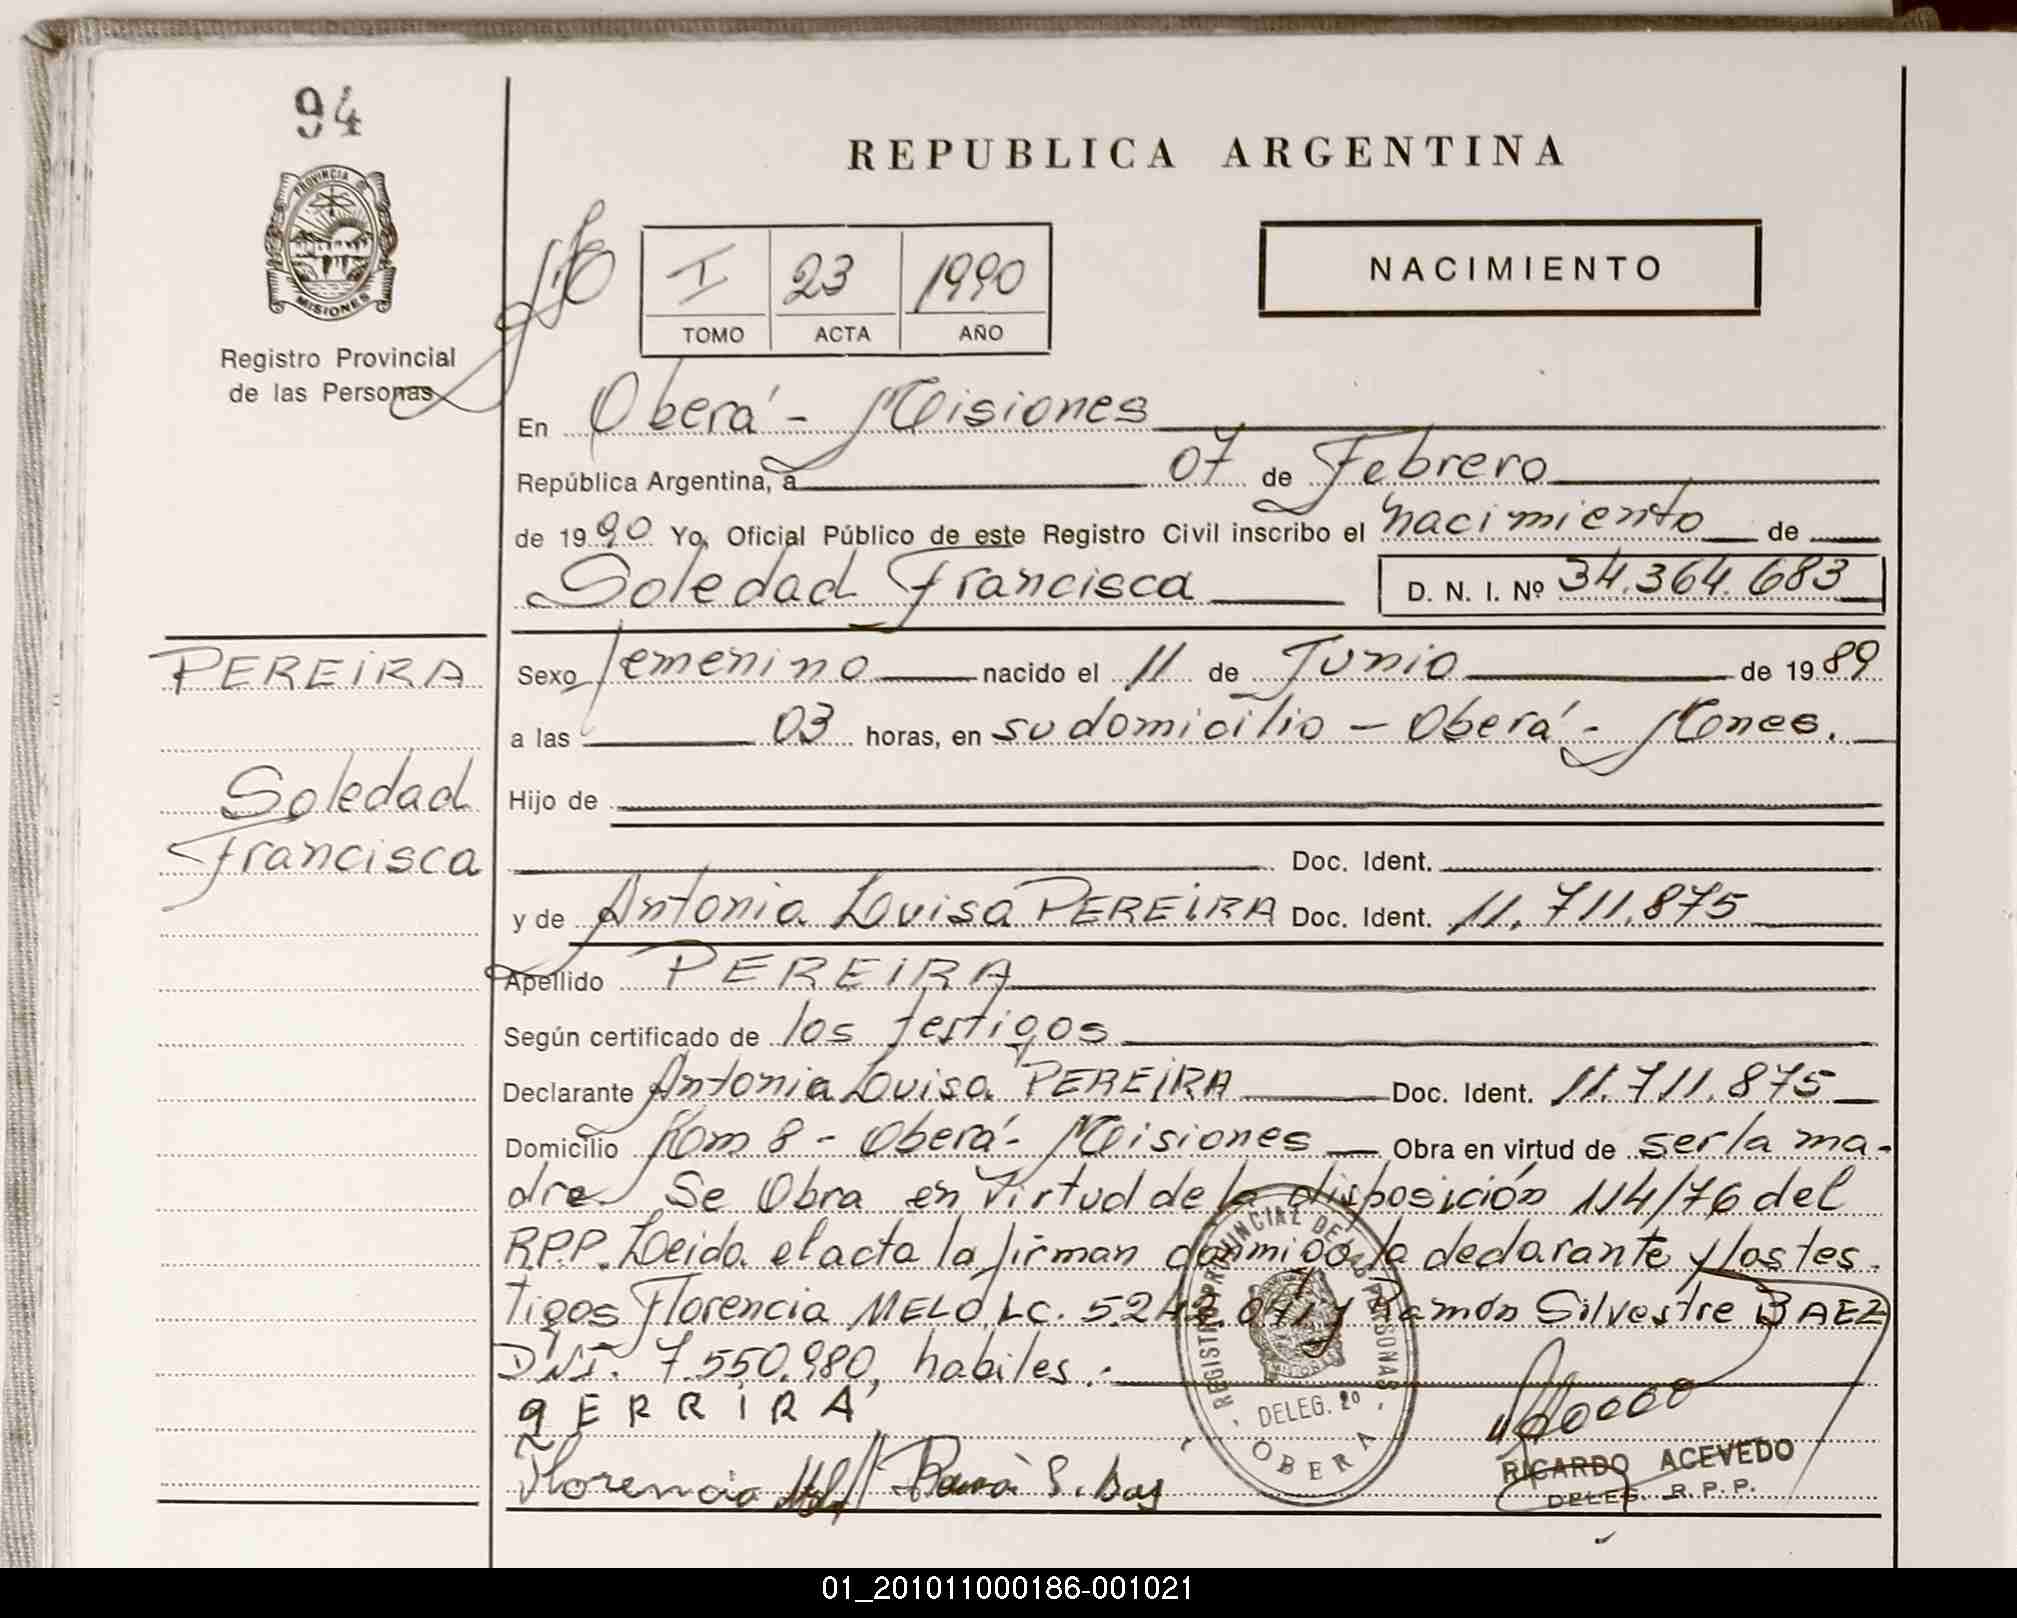 94
PROVINCIA DE
MISIONES
Registro Provincial
de las Personas
REPUBLICA ARGENTINA
I 23 1990
TOMO ACTA AÑO
NACIMIENTO
En Oberá - Misiones
República Argentina, a 07 de Febrero
de 1990 Yo, Oficial Público de este Registro Civil inscribo el nacimiento de
Soledad Francisca D. N. I. Nº 34.364.683
PEREIRA
Soledad
Francisca
Sexo femenino nacido el 11 de Junio de 1989
a las 03 horas, en su domicilio - Oberá - Mones.
Hijo de
Doc. Ident.
y de Antonia Luisa PEREIRA Doc. Ident. 11.711.875
Apellido PEREIRA
Según certificado de los testigos
Declarante Antonia Luisa PEREIRA Doc. Ident. 11.711.875
Domicilio Km 8 - Oberá - Misiones Obra en virtud de ser la ma-
dre Se Obra en virtud de la disposición 114/76 del
R.P.P. Leida el acta la firman conmigo la declarante y los tes-
tigos Florencia MELO, LC. 5.242.041 y Ramón Silvestre BAEZ
DNI. 7.550.980, habiles.-
qERRIRA
Florencia
REGISTRO PROVINCIAL DE LAS PERSONAS
DELEG. 20
OBERA
RICARDO ACEVEDO
DELEG. R.P.P.
01_201011000186-001021